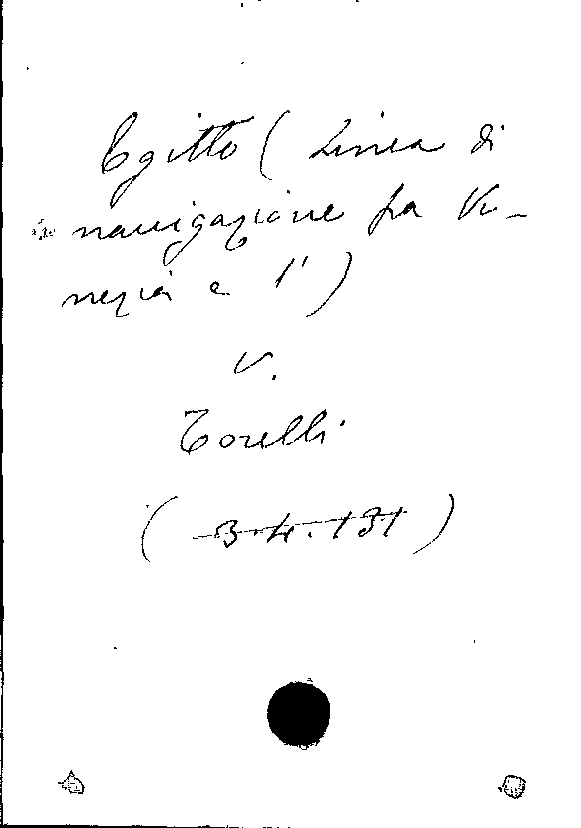 Egitto ( Linea di
navigazione fra Ve-
nezia e l')
V.
Torelli
( 3.4.131 )